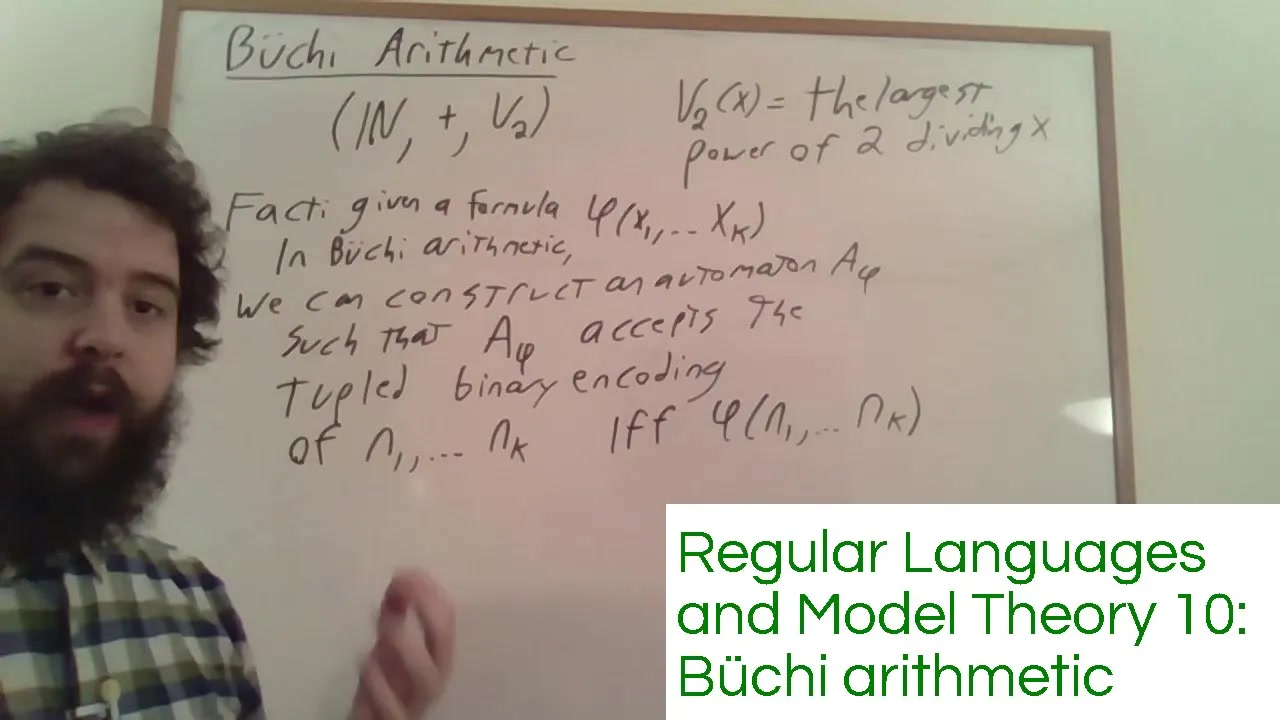 Büchi Arithmetic
(ℕ, +, V₂)
V₂(x) = the largest
power of 2 dividing x
Fact: given a formula φ(x₁,... xₖ)
In Büchi arithmetic,
We can construct an automaton Aφ
such that Aφ accepts the
tupled binary encoding
of n₁,... nₖ iff φ(n₁,... nₖ)
Regular Languages
and Model Theory 10:
Büchi arithmetic